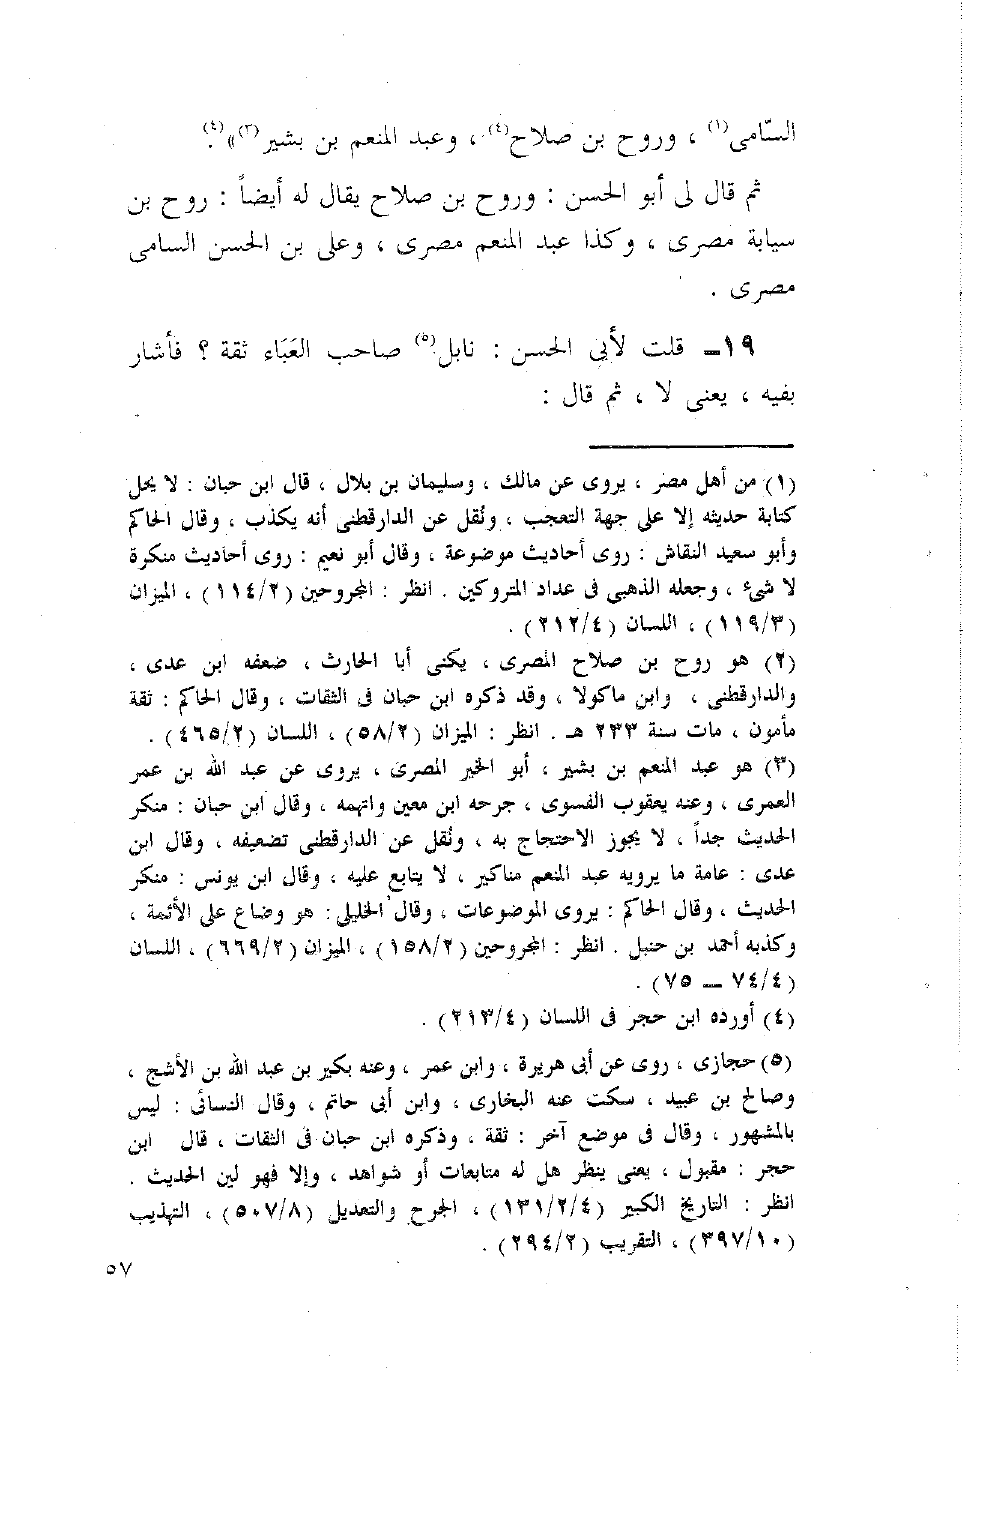 السّامى(١) ، وروح بن صلاح(٤) ، وعبد المنعم بن بشير(٣)»(٤).
ثم قال لى أبو الحسن : وروح بن صلاح يقال له أيضاً : روح بن
سيابة مصرى ، وكذا عبد المنعم مصرى ، وعلى بن الحسن السامى
مصرى .
١٩ـ قلت لأبى الحسن : نابل(٥) صاحب العَبَاء ثقة ؟ فأشار
بفيه ، يعنى لا ، ثم قال :
(١) من أهل مصر ، يروى عن مالك ، وسليمان بن بلال ، قال ابن حبان : لا يحل
كتابة حديثه إلا على جهة التعجب ، ونُقل عن الدارقطنى أنه يكذب ، وقال الحاكم
وأبو سعيد النقاش : روى أحاديث موضوعة ، وقال أبو نعيم : روى أحاديث منكرة
لا شىء ، وجعله الذهبى فى عداد المتروكين . انظر : المجروحين (١١٤/٢) ، الميزان
(١١٩/٣) ، اللسان (٢١٢/٤) .
(٢) هو روح بن صلاح المصرى ، يكنى أبا الحارث ، ضعفه ابن عدى ،
والدارقطنى ، وابن ماكولا ، وقد ذكره ابن حبان فى الثقات ، وقال الحاكم : ثقة
مأمون ، مات سنة ٢٣٣ هـ . انظر : الميزان (٥٨/٢) ، اللسان (٤٦٥/٢) .
(٣) هو عبد المنعم بن بشير ، أبو الخير المصرى ، يروى عن عبد الله بن عمر
العمرى ، وعنه يعقوب الفسوى ، جرحه ابن معين واتهمه ، وقال ابن حبان : منكر
الحديث جداً ، لا يجوز الاحتجاج به ، ونُقل عن الدارقطنى تضعيفه ، وقال ابن
عدى : عامة ما يرويه عبد المنعم مناكير ، لا يتابع عليه ، وقال ابن يونس : منكر
الحديث ، وقال الحاكم : يروى الموضوعات ، وقال الخليلى : هو وضاع على الأئمة ،
وكذبه أحمد بن حنبل . انظر : المجروحين (١٥٨/٢) ، الميزان (٦٦٩/٢) ، اللسان
(٧٤/٤ ــ ٧٥) .
(٤) أورده ابن حجر فى اللسان (٢١٣/٤) .
(٥) حجازى ، روى عن أبى هريرة ، وابن عمر ، وعنه بكير بن عبد الله بن الأشج ،
وصالح بن عبيد ، سكت عنه البخارى ، وابن أبى حاتم ، وقال النسائى : ليس
بالمشهور ، وقال فى موضع آخر : ثقة ، وذكره ابن حبان فى الثقات ، قال ابن
حجر : مقبول ، يعنى ينظر هل له متابعات أو شواهد ، وإلا فهو لين الحديث .
انظر : التاريخ الكبير (١٣١/٢/٤) ، الجرح والتعديل (٥٠٧/٨) ، التهذيب
(٣٩٧/١٠) ، التقريب (٢٩٤/٢) .
٥٧